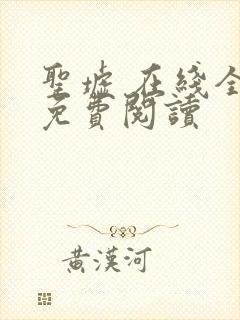 聖墟 在綫全
免費閱讀
黃漢河